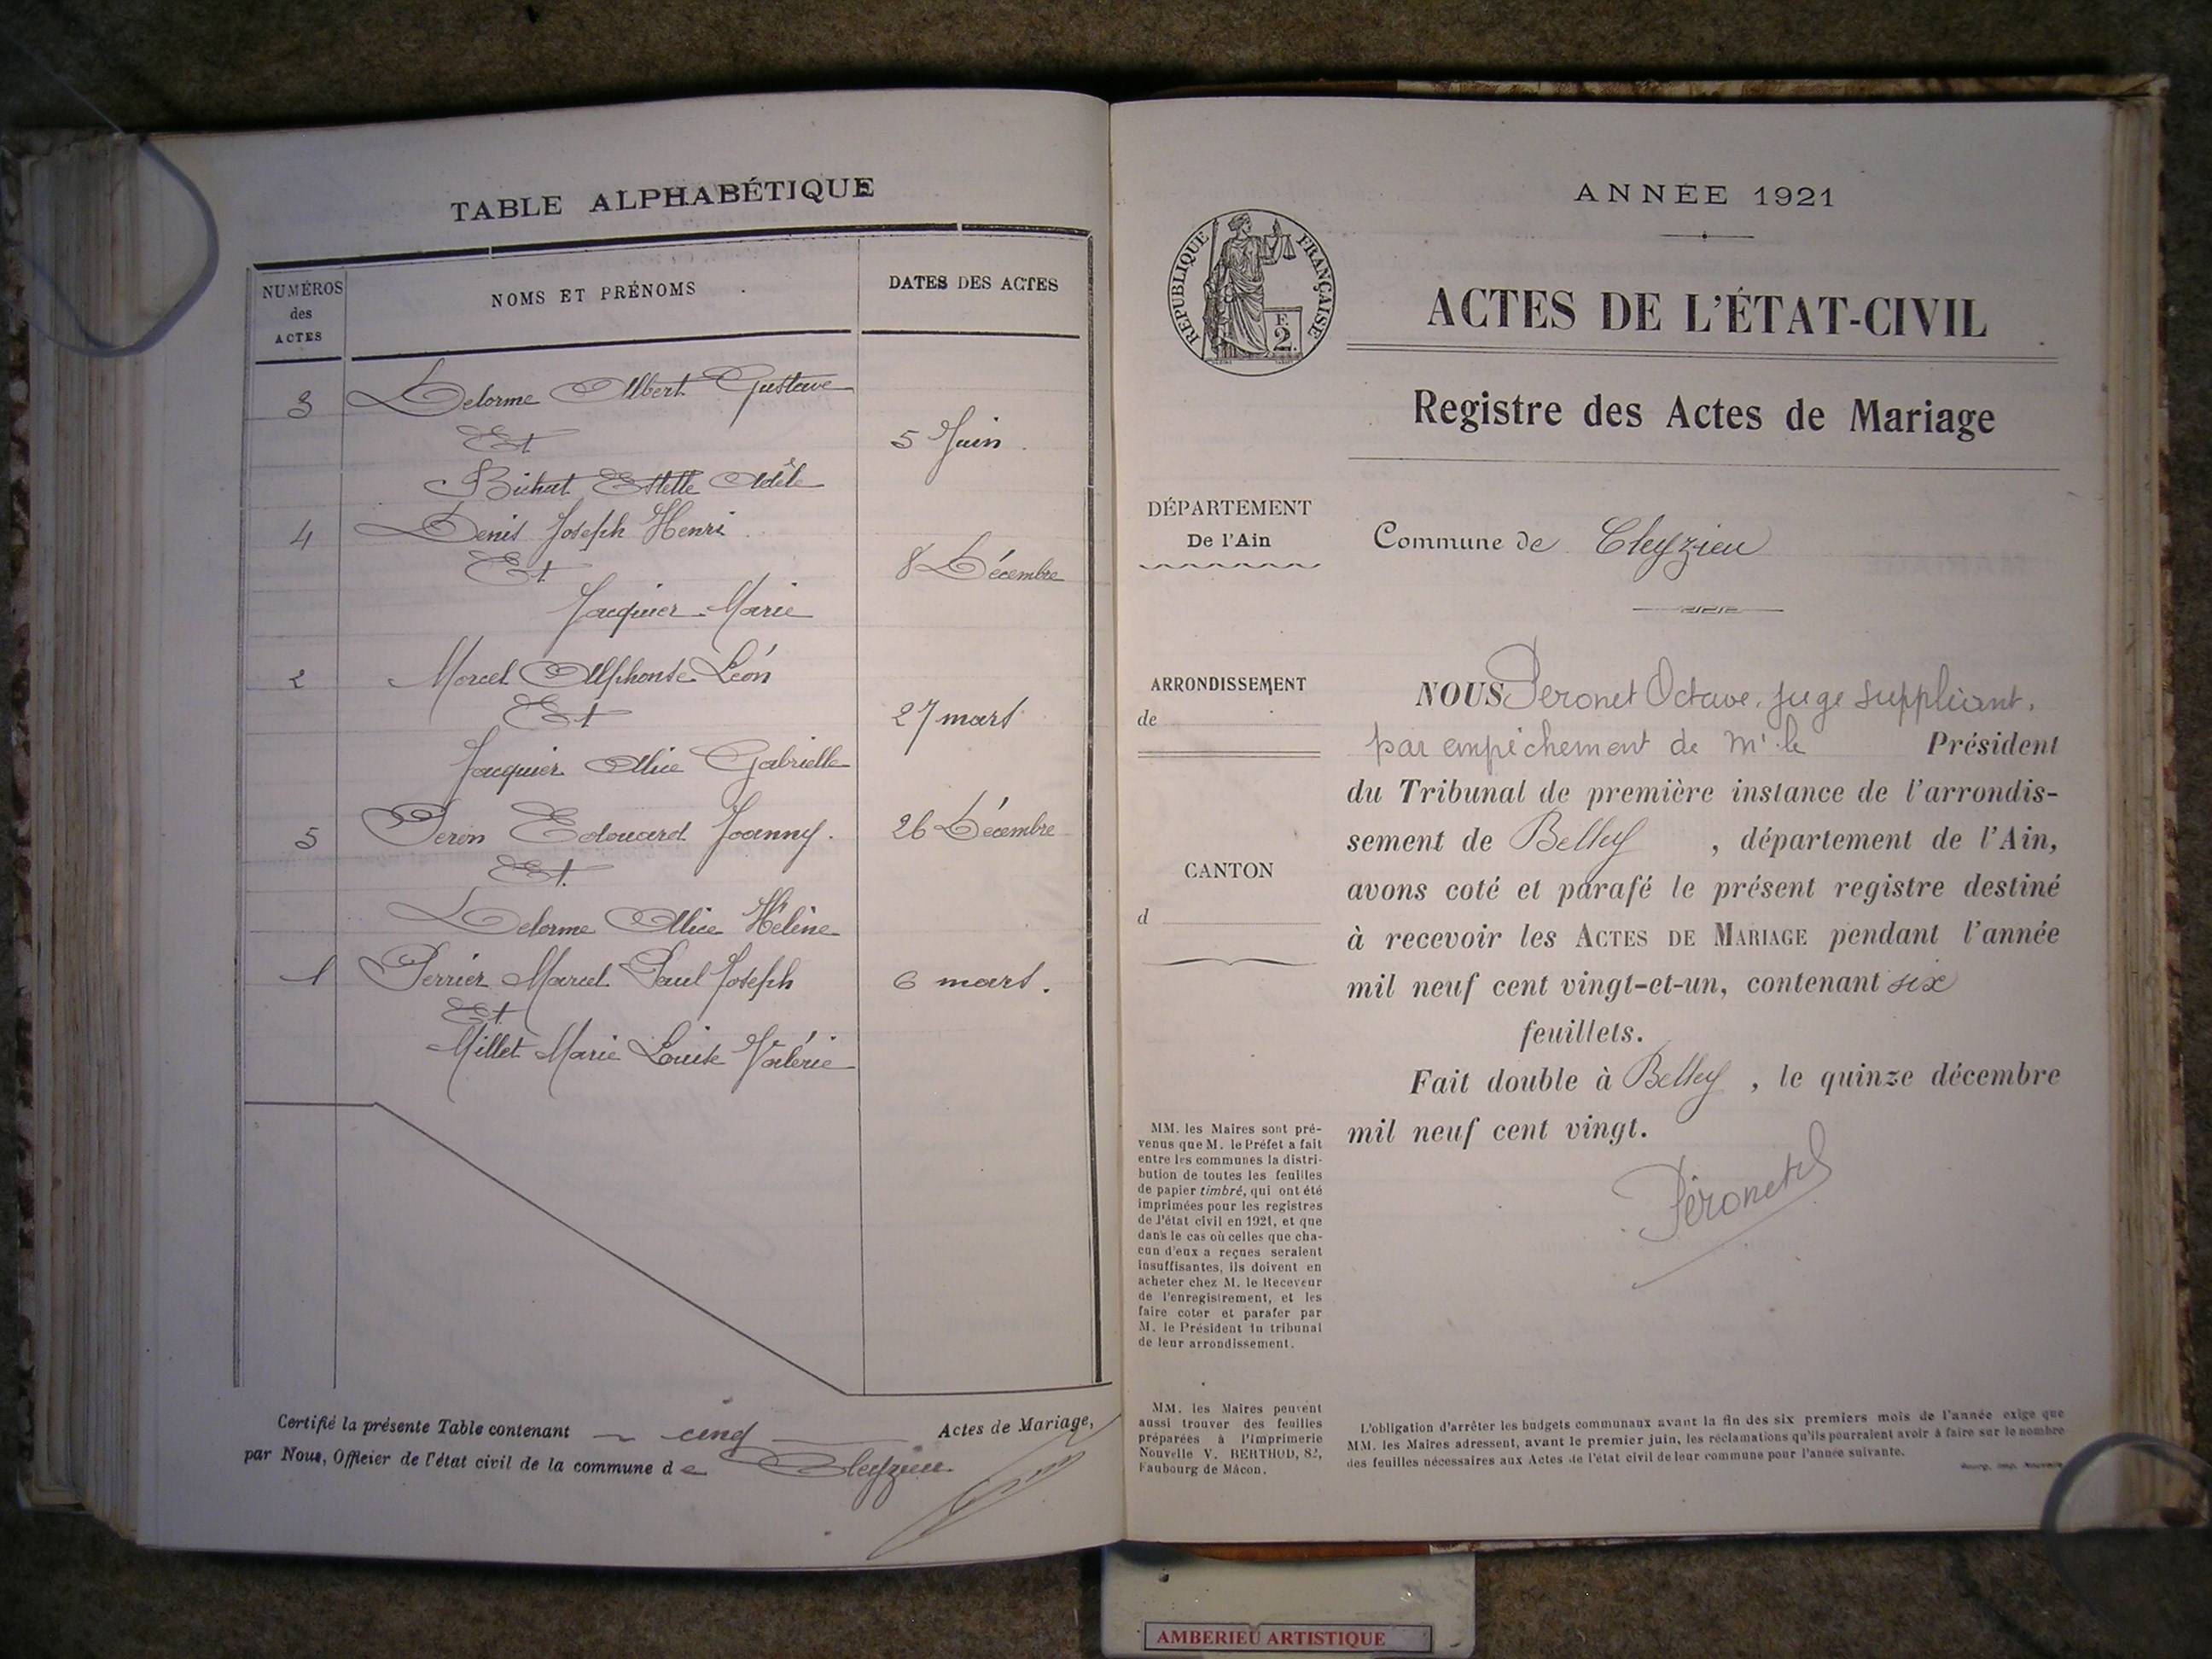 TABLE ALPHABÉTIQUE
NUMÉROS
des
ACTES
NOMS ET PRÉNOMS
DATES DES ACTES
3 Delorme Albert Gustave
Et
5 Juin
Bichat Estelle Adèle
4 Denis Joseph Henri
Et
8 Décembre
Jacquier Marie
2 Morcel Alphonse Léon
Et
27 mars
Jacquier Alice Gabrielle
5 Peron Edouard Joanny. 26 Décembre
Et
Delorme Alice Hélène
1 Perrier Marcel Paul Joseph 6 mars.
Et
Millet Marie Louise Valérie
Certifié la présente Table contenant cinq Actes de Mariage,
par Nous, Officier de l'état civil de la commune de Cleyzieu
ANNÉE 1921
RÉPUBLIQUE FRANÇAISE
F.
2.
ACTES DE L'ÉTAT-CIVIL
Registre des Actes de Mariage
DÉPARTEMENT
De l'Ain
Commune de Cleyzieu
ARRONDISSEMENT
de
CANTON
d
NOUS Péronet Octave, juge suppléant,
par empêchement de Mr le Président
du Tribunal de première instance de l'arrondis-
sement de Belley, département de l'Ain,
avons coté et parafé le présent registre destiné
à recevoir les ACTES DE MARIAGE pendant l'année
mil neuf cent vingt-et-un, contenant six
feuillets.
Fait double à Belley, le quinze décembre
mil neuf cent vingt.
Péronet
MM. les Maires sont pré-
venus que M. le Préfet a fait
entre les communes la distri-
bution de toutes les feuilles
de papier timbré, qui ont été
imprimées pour les registres
de l'état civil en 1921, et que
dans le cas où celles que cha-
cun d'eux a reçues seraient
insuffisantes, ils doivent en
acheter chez M. le Receveur
de l'enregistrement, et les
faire coter et parafer par
M. le Président du tribunal
de leur arrondissement.
MM. les Maires peuvent
aussi trouver des feuilles
préparées à l'imprimerie
Nouvelle V. BERTHOD, 82,
Faubourg de Mâcon.
L'obligation d'arrêter les budgets communaux avant la fin des six premiers mois de l'année exige que
MM. les Maires adressent, avant le premier juin, les réclamations qu'ils pourraient avoir à faire sur le nombre
des feuilles nécessaires aux Actes de l'état civil de leur commune pour l'année suivante.
Bourg, imp. Nouvelle
AMBERIEU ARTISTIQUE